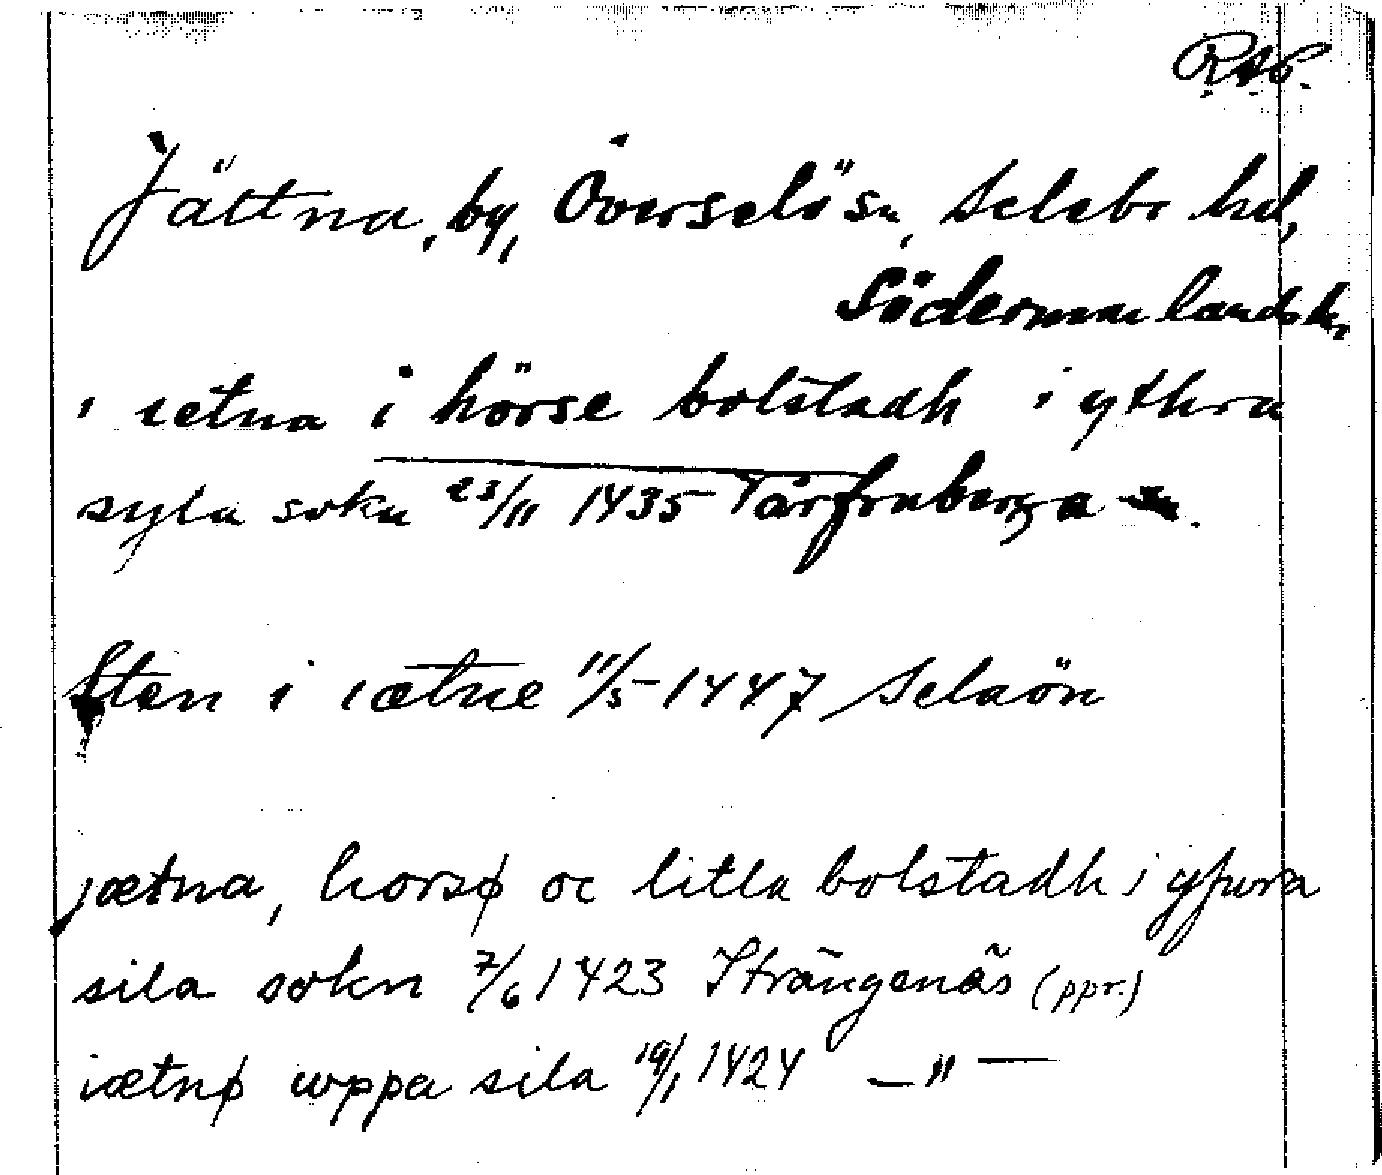 RAP.
Jättna, by, Överselö sn, Selebo hd,
Södermanlands l.
i ietna i hörse bolstadh i ythra
syla sokn 23/11 1435 Tårfruberga sn.
Sten i iætne 11/5 1447 Selaön
jætna, horsø oc litla bolstadh i yfura
sila sokn 7/6 1423 Strängenäs (ppr.)
iætnø wppa sila 19/1 1424 — " —